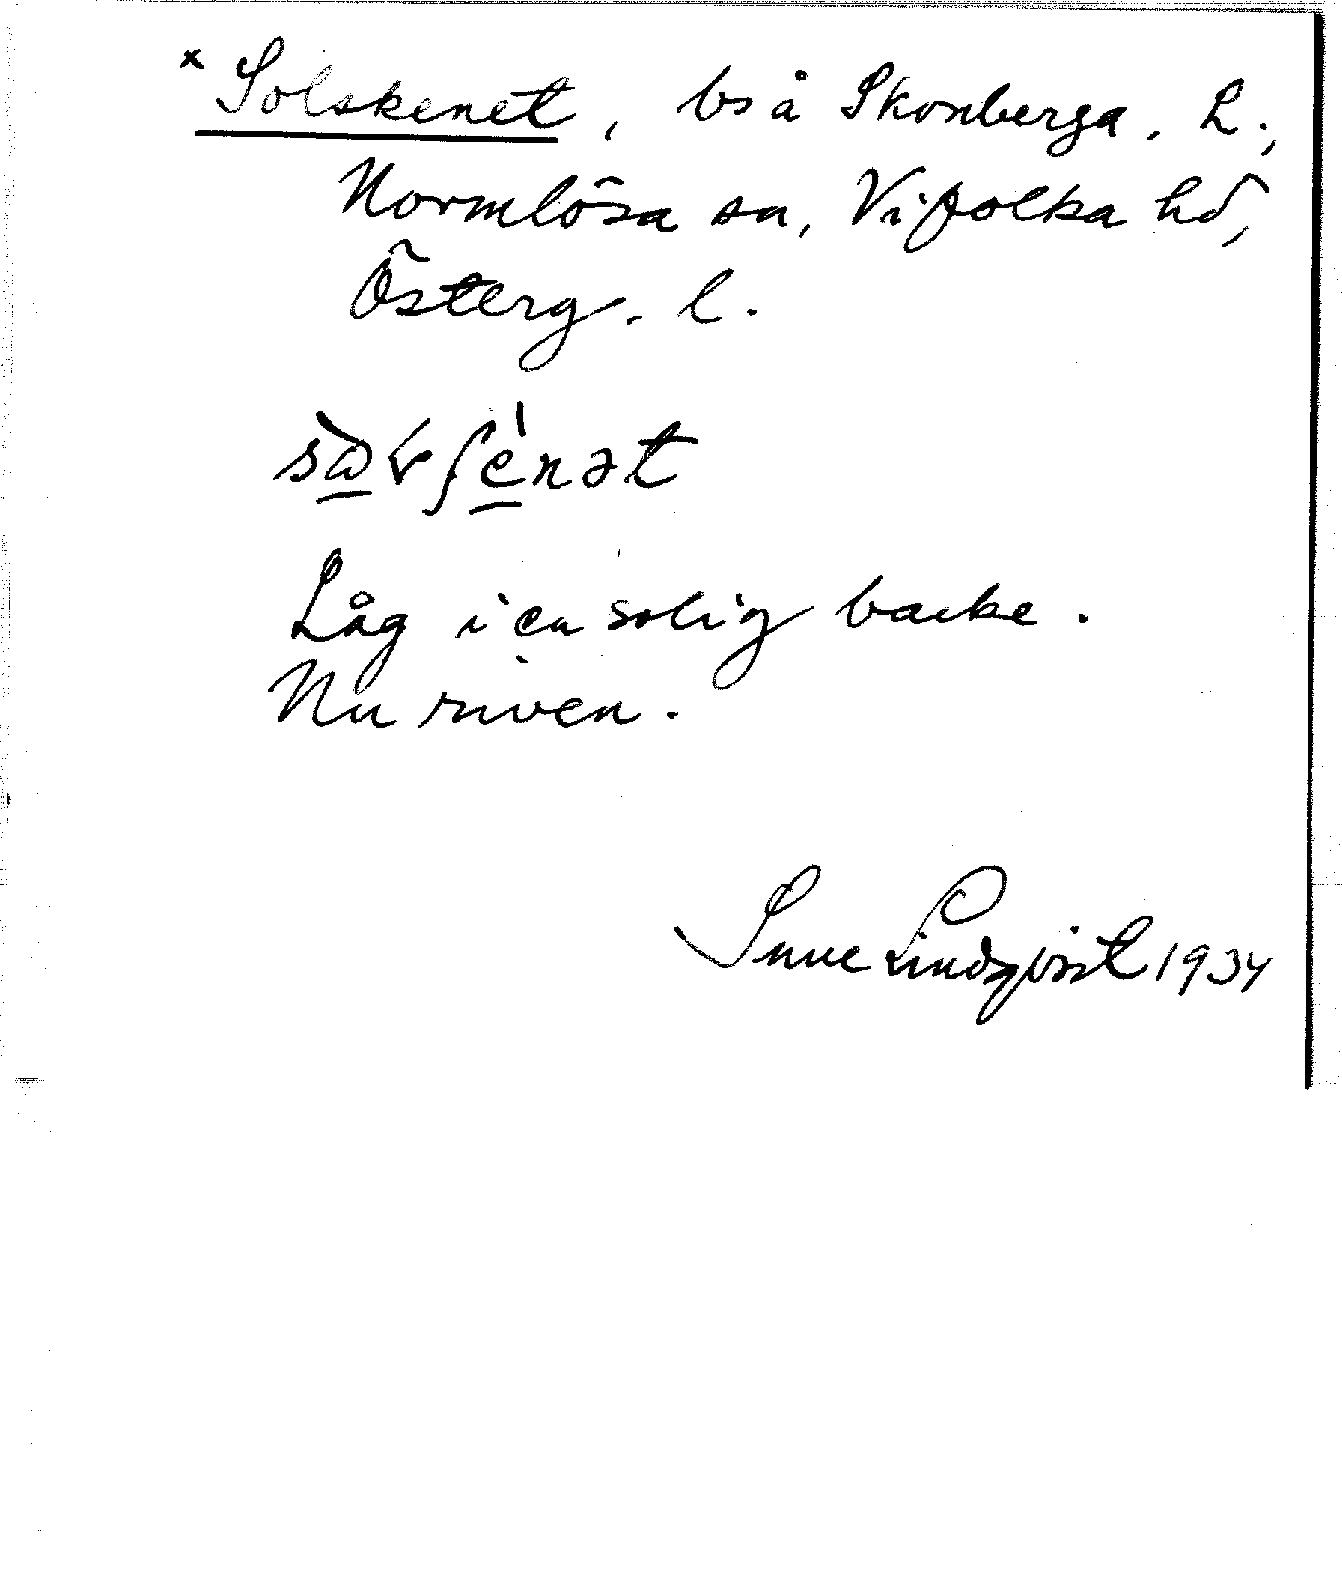 × Solskenet, bs å Skonberga. L.,
Normlösa sn, Vifolka hd,
Österg. l.
Låg i en solig backe.
Nu riven.
Sune Lindqvist 1934